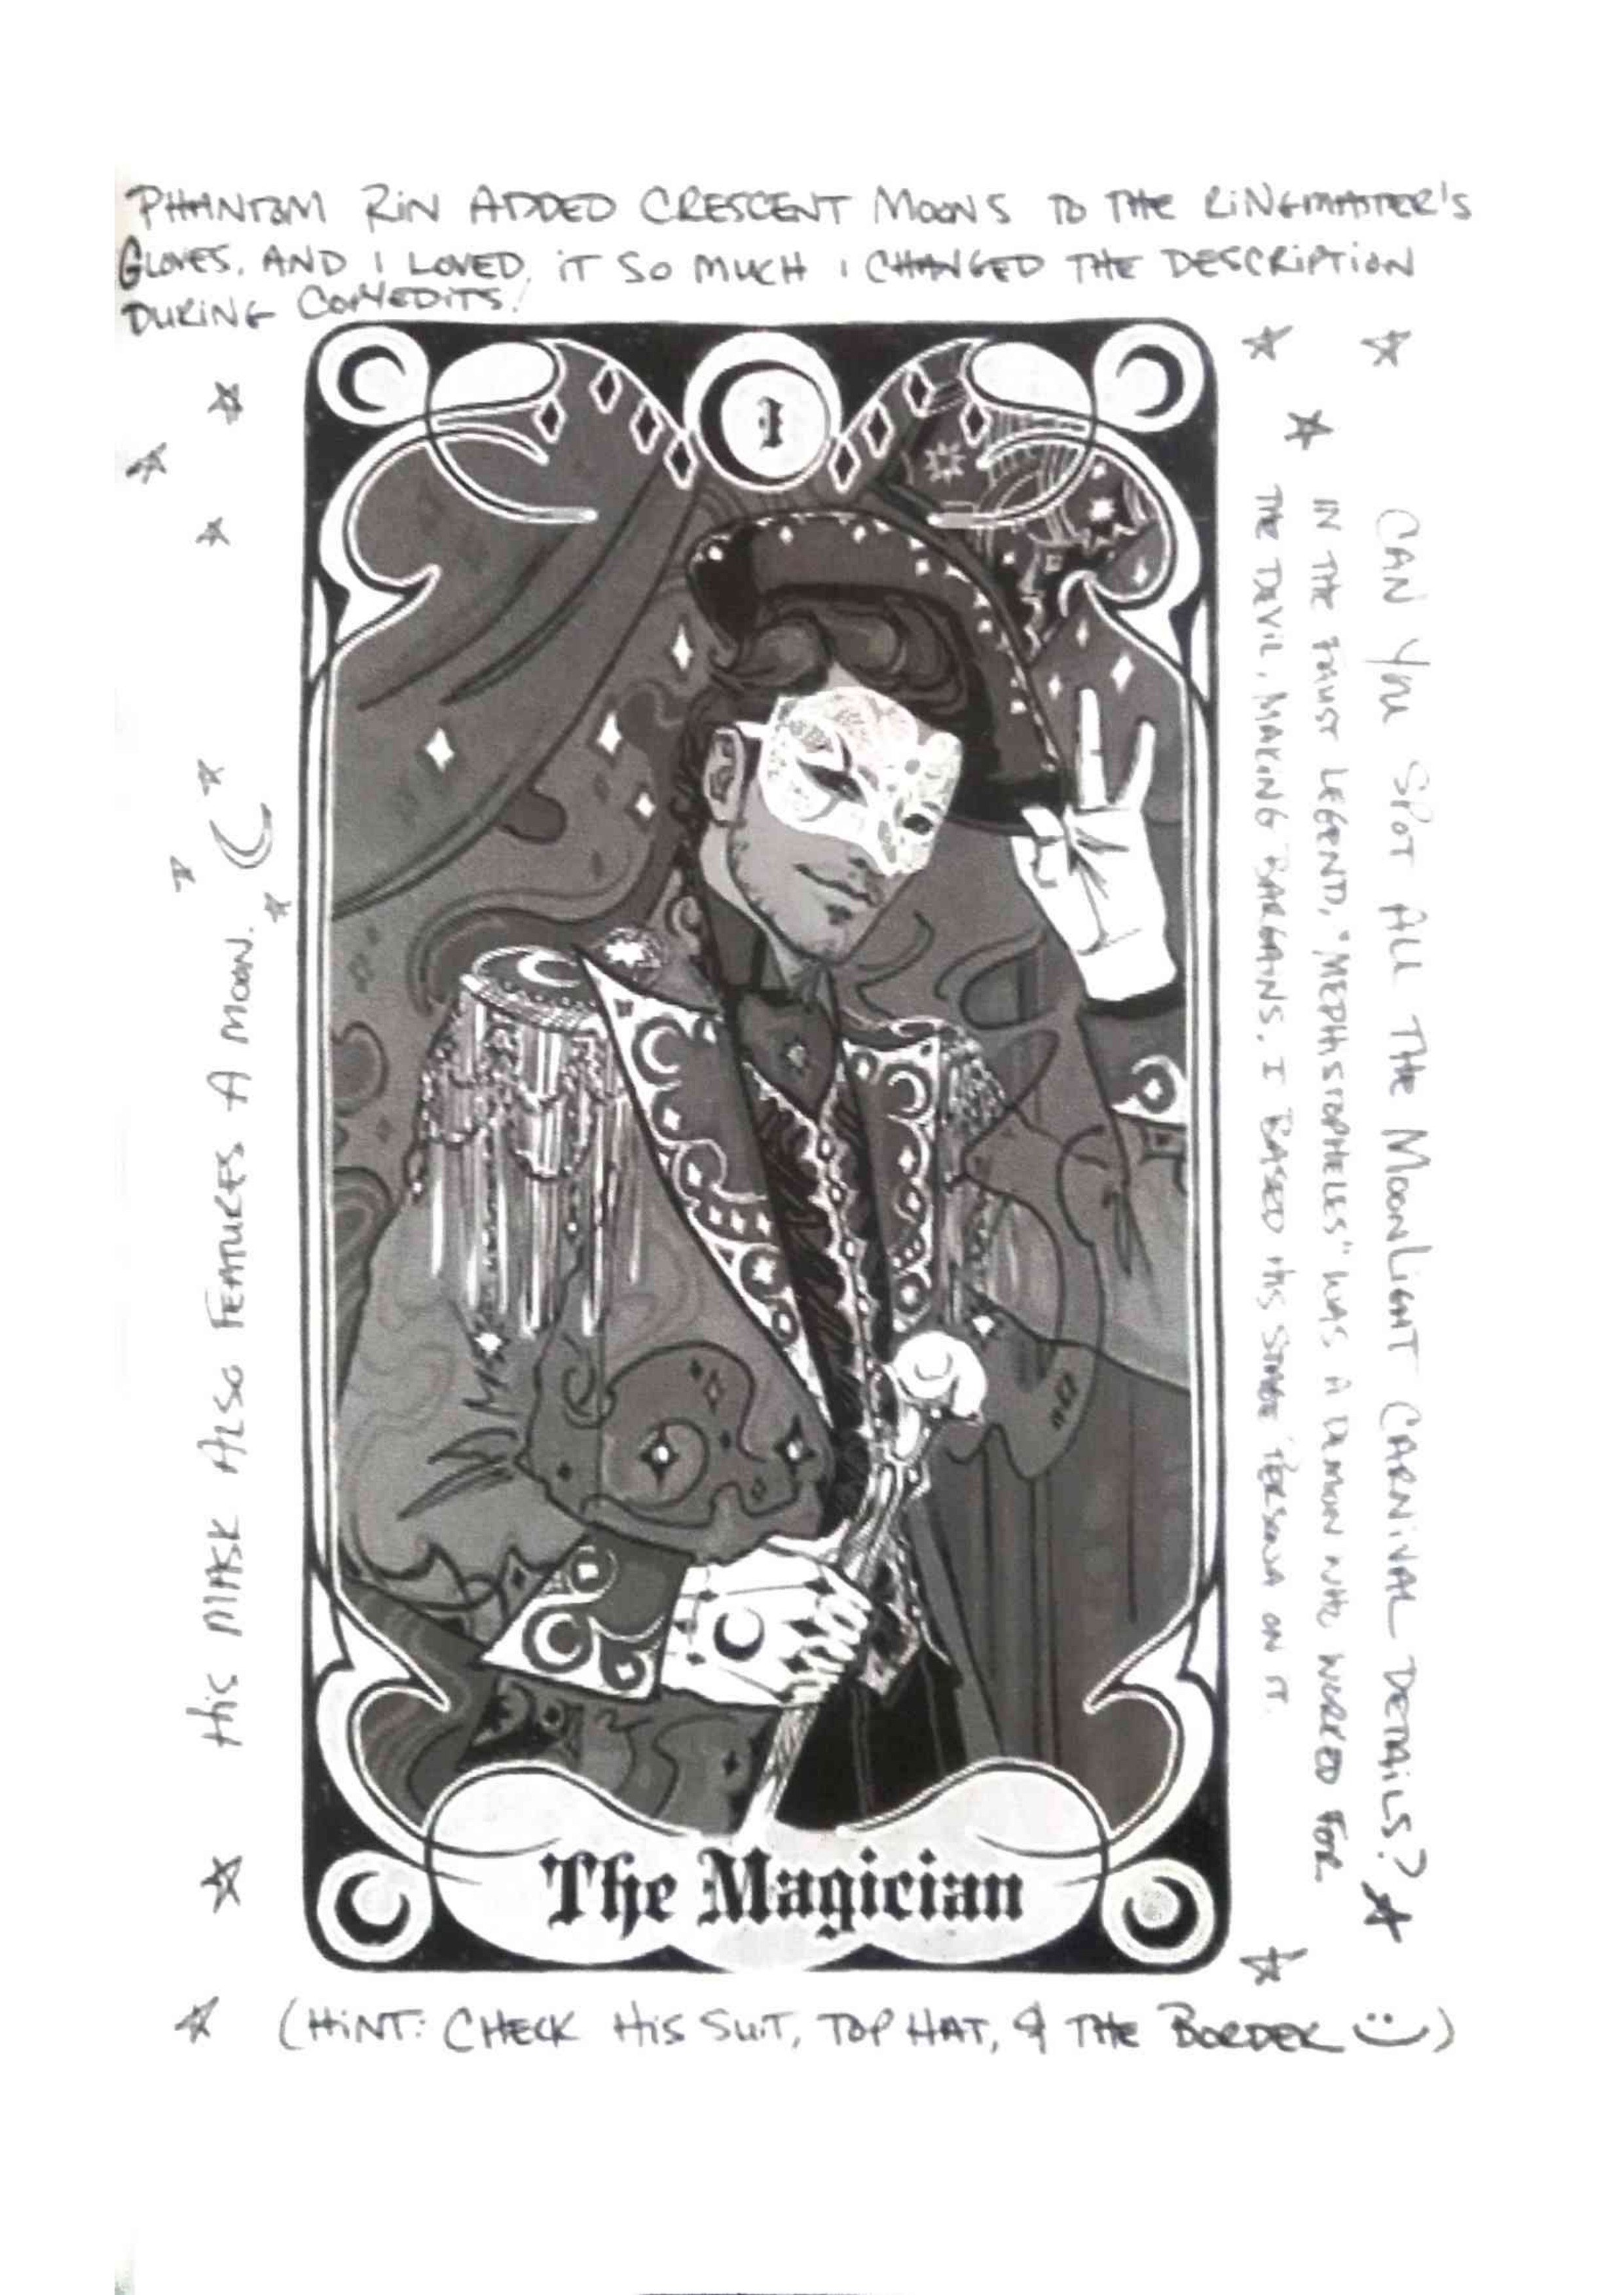 PHANTOM RIN ADDED CRESCENT MOONS TO THE RINGMASTER'S
GLOVES, AND I LOVED IT SO MUCH I CHANGED THE DESCRIPTION
DURING COPYEDITS!
I
HIS MASK ALSO FEATURES A MOON.
CAN YOU SPOT ALL THE MOONLIGHT CARNIVAL DETAILS?
IN THE FAUST LEGEND, "MEPHISTOPHELES" WAS A DEMON WHO WORKED FOR
THE DEVIL, MAKING BARGAINS. I BASED HIS STAGE PERSONA ON IT.
The Magician
(HINT: CHECK HIS SUIT, TOP HAT, & THE BORDER :))